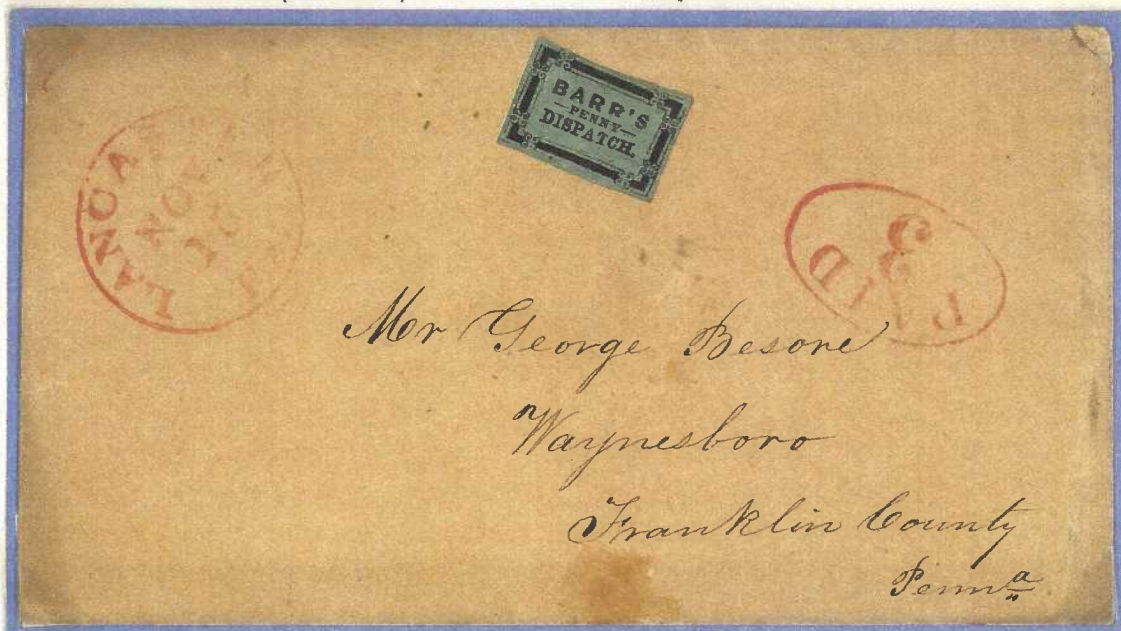 BARR'S
PENNY
DISPATCH.
LANCASTER Pa.
NOV
PAID
3
Mr George Besore
Waynesboro
Franklin County
Penna